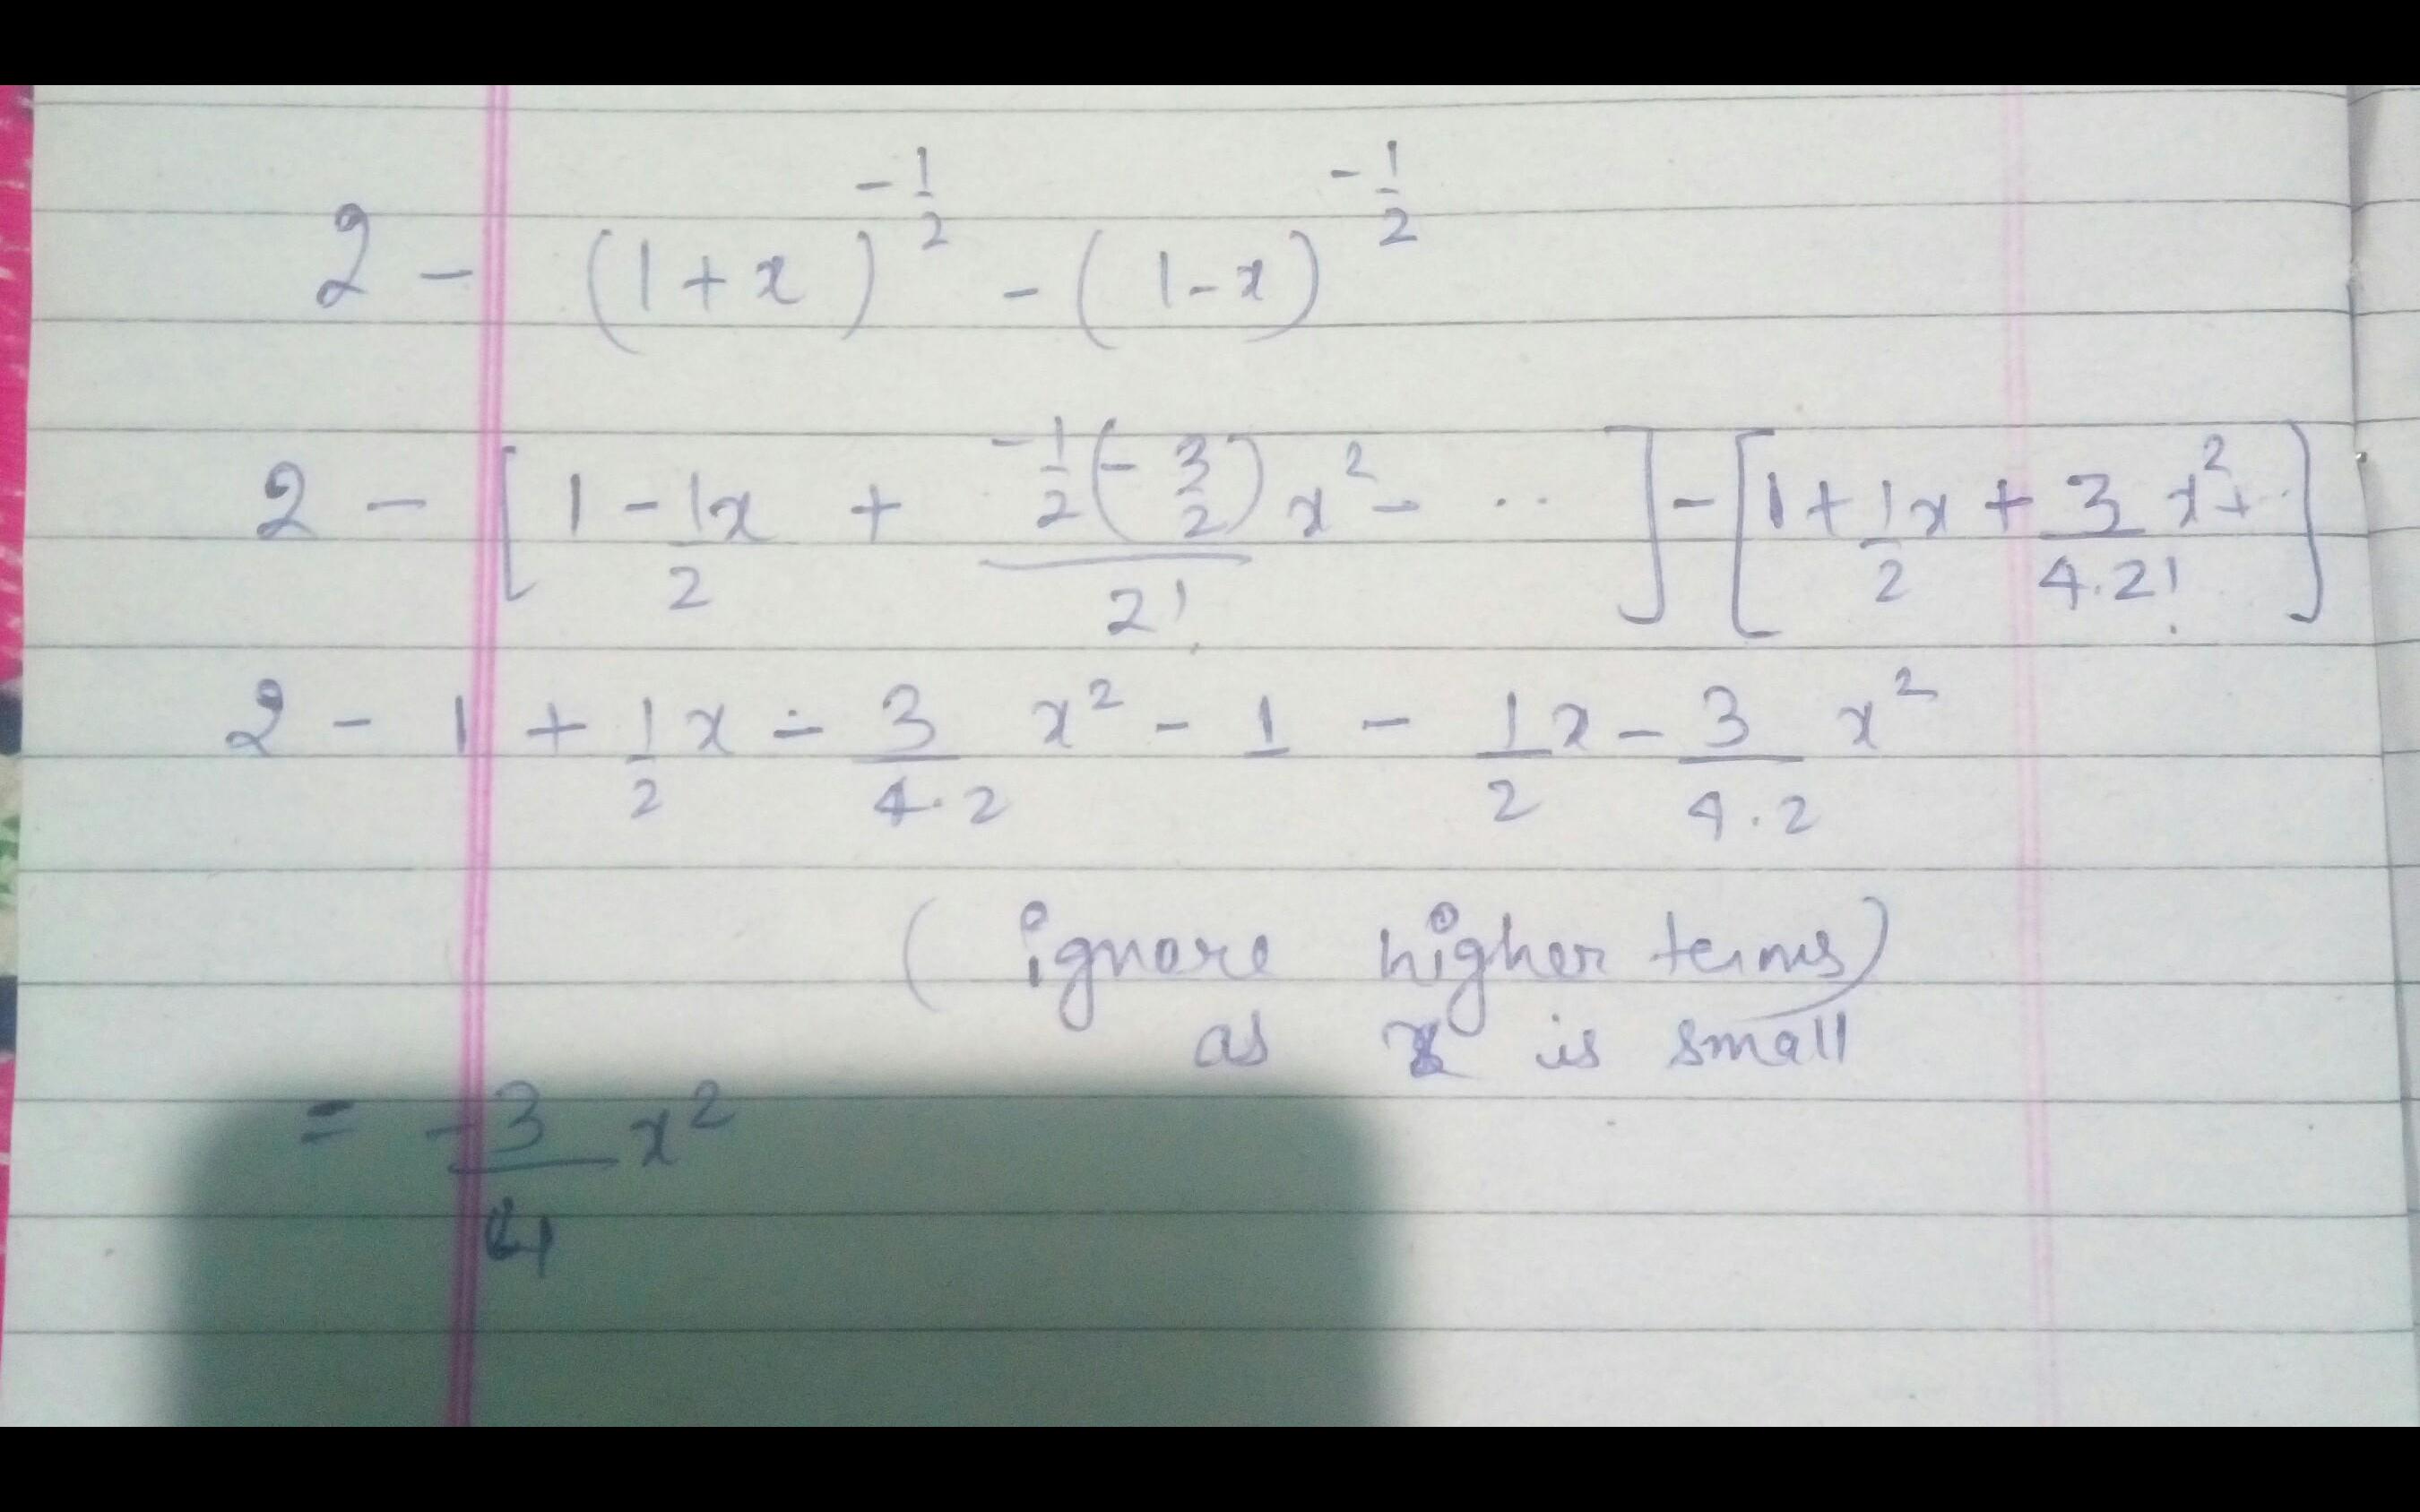 2 - (1+x)^{-1/2} - (1-x)^{-1/2}
2 - [1 - 1/2 x + (-1/2(-3/2))/2! x² - ..] - [1 + 1/2 x + 3/(4.2!) x² + ..]
2 - 1 + 1/2 x - 3/(4.2) x² - 1 - 1/2 x - 3/(4.2) x²
(ignore higher terms)
as x is small
= -3/4 x²